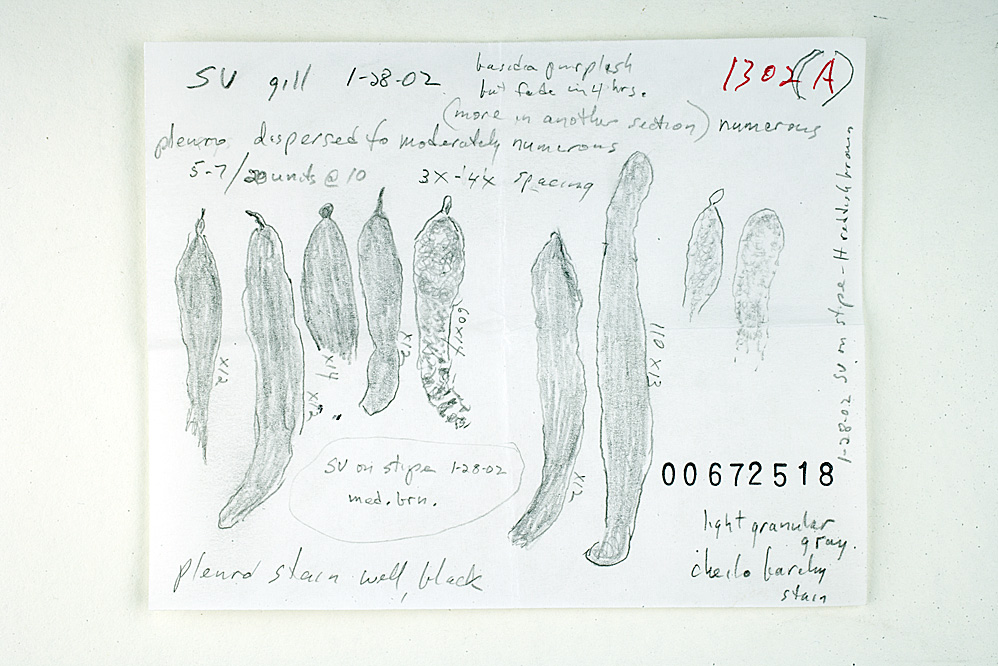 SV gill 1-28-02
basidia purplish
but fade in 4 hrs.
1302 (A)
(more in another section) numerous
pleuro dispersed to moderately numerous
5-7/20 units @ 10 3X-4X spacing
X12
X12
X14
X12
60X14
X12
110 X13
SV on stipe 1-28-02
med. brn.
1-28-02 SV on stipe - H reddish brown
00672518
light granular
gray.
cheilo barely
stain
pleuro stain well, black